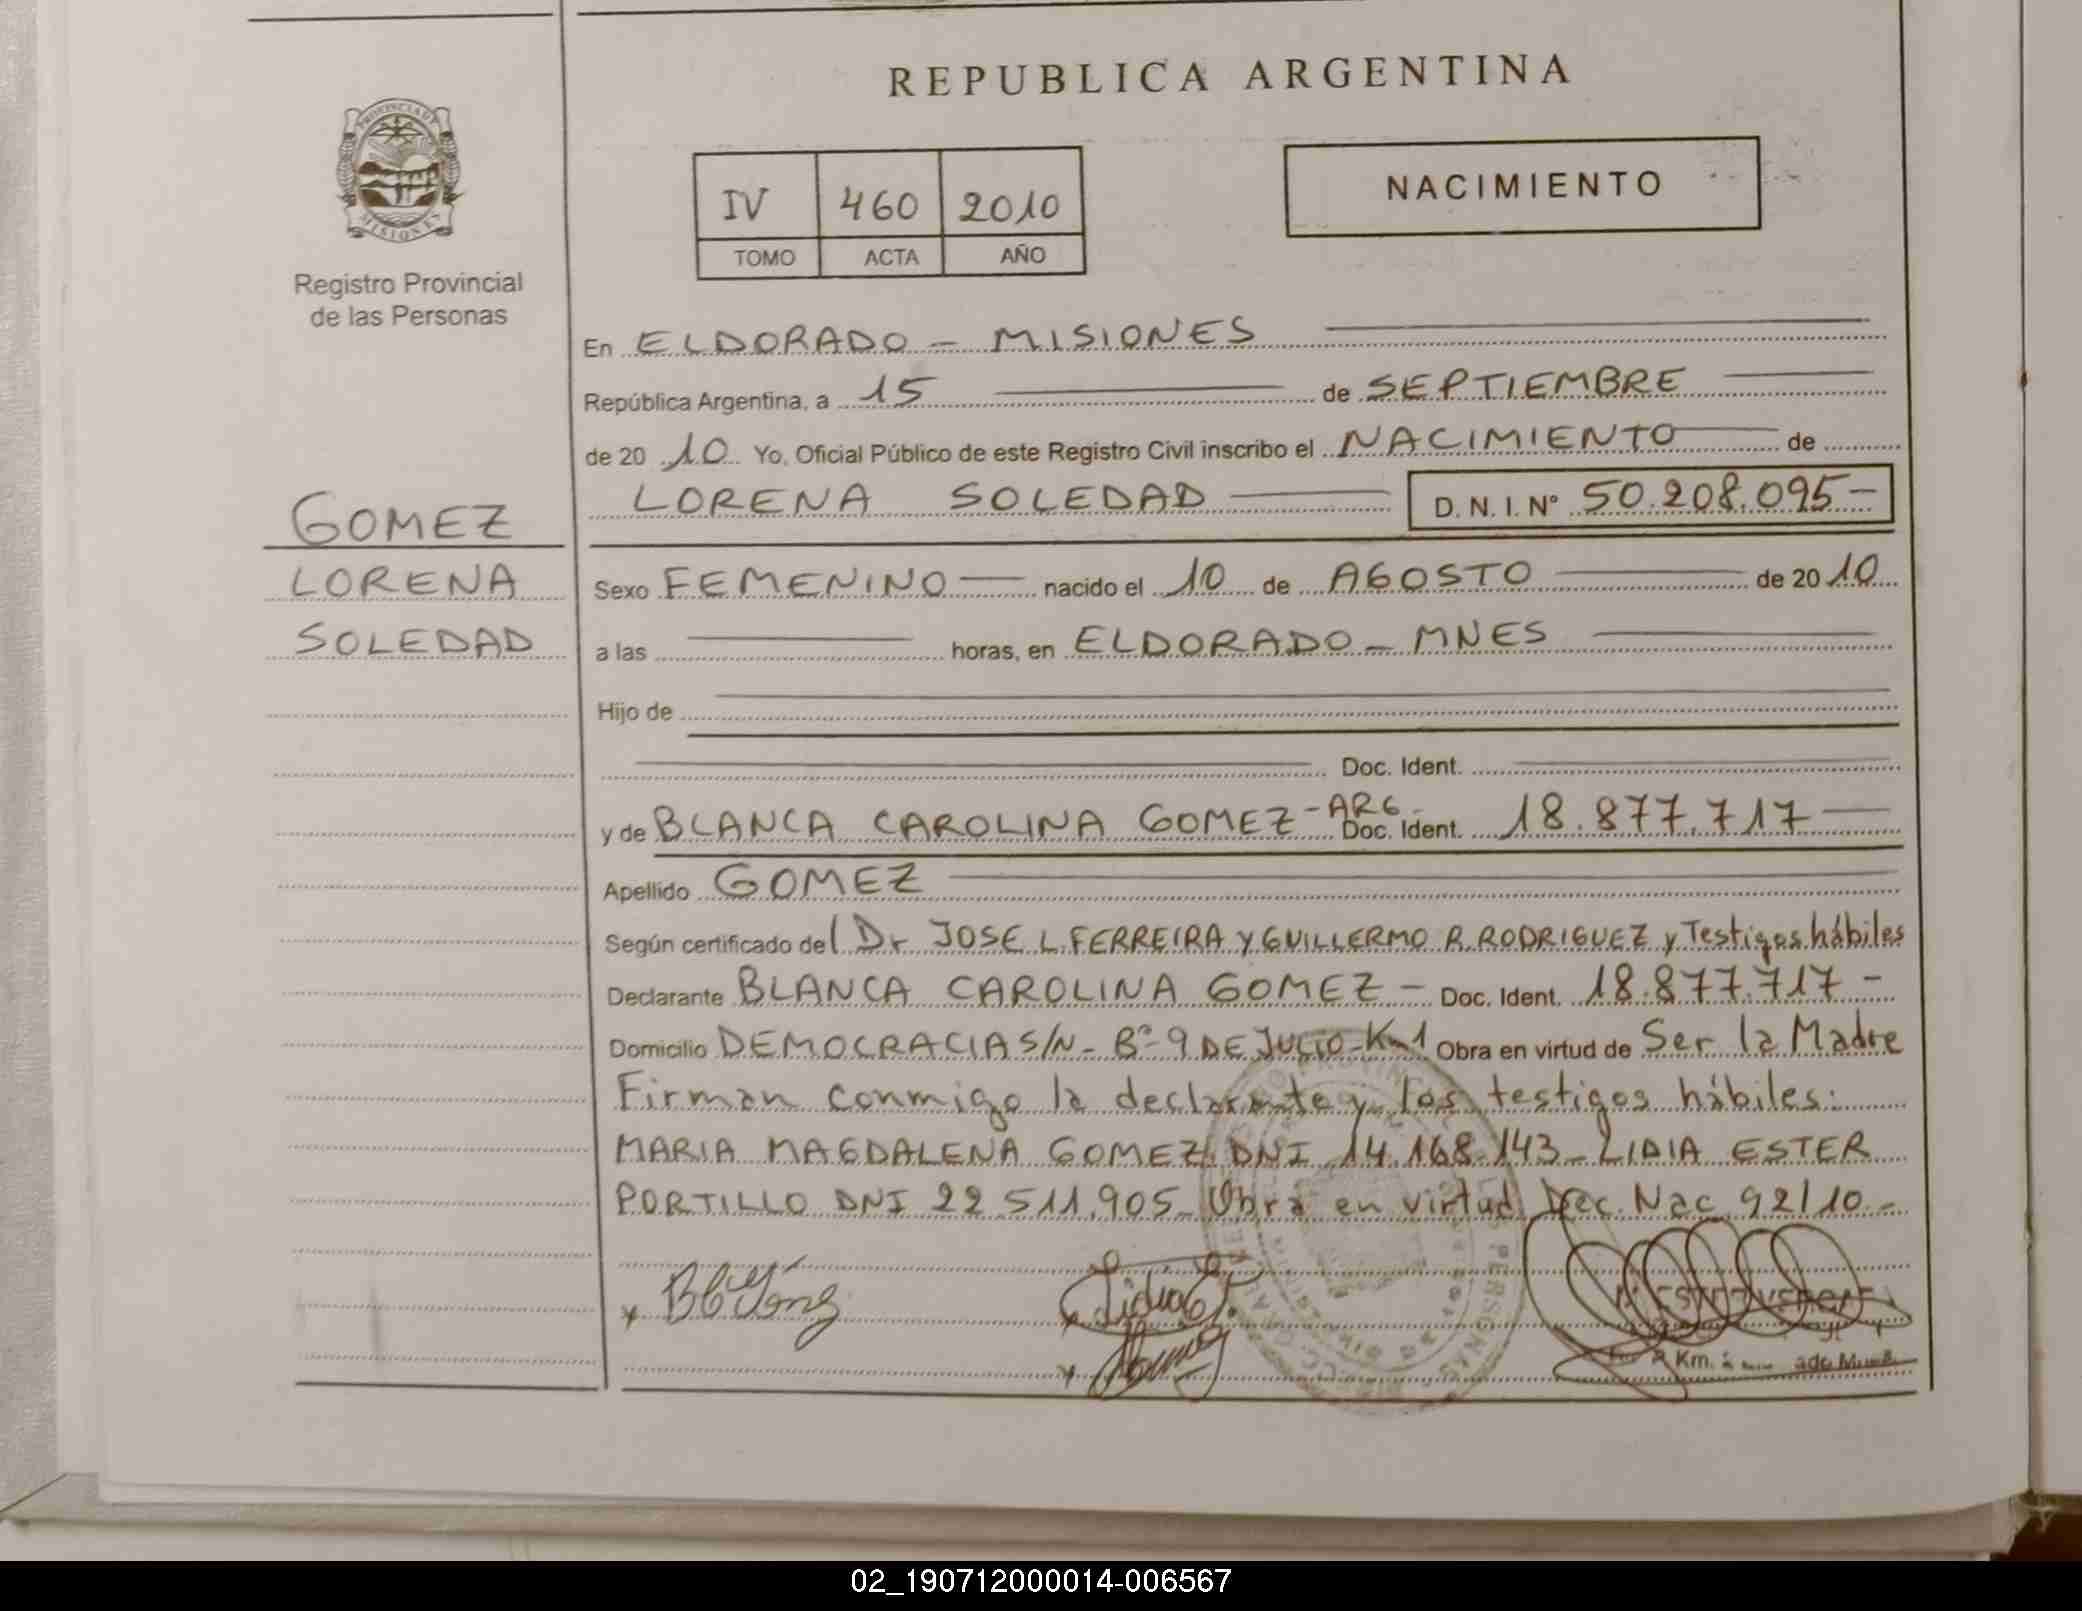 REPUBLICA ARGENTINA
PROVINCIA DE
MISIONES
Registro Provincial
de las Personas
IV 460 2010
TOMO ACTA AÑO
NACIMIENTO
GOMEZ
LORENA
SOLEDAD
En ELDORADO - MISIONES
República Argentina, a 15 de SEPTIEMBRE
de 20 10 Yo, Oficial Público de este Registro Civil inscribo el NACIMIENTO de
LORENA SOLEDAD D. N. I. N° 50.208.095-
Sexo FEMENINO nacido el 10 de AGOSTO de 20 10
a las horas, en ELDORADO - MNES
Hijo de
Doc. Ident.
y de BLANCA CAROLINA GOMEZ - ARG - Doc. Ident. 18.877.717
Apellido GOMEZ
Según certificado del Dr JOSE L. FERREIRA Y GUILLERMO R. RODRIGUEZ y Testigos hábiles
Declarante BLANCA CAROLINA GOMEZ - Doc. Ident. 18.877.717 -
Domicilio DEMOCRACIA S/N - B° 9 DE JULIO - Km 1 Obra en virtud de Ser la Madre
Firman conmigo la declarante y los testigos hábiles:
MARIA MAGDALENA GOMEZ DNI 14.168.143 - LIDIA ESTER
PORTILLO DNI 22.511.905 - Obra en virtud Dec. Nac. 92/10.-
02_190712000014-006567